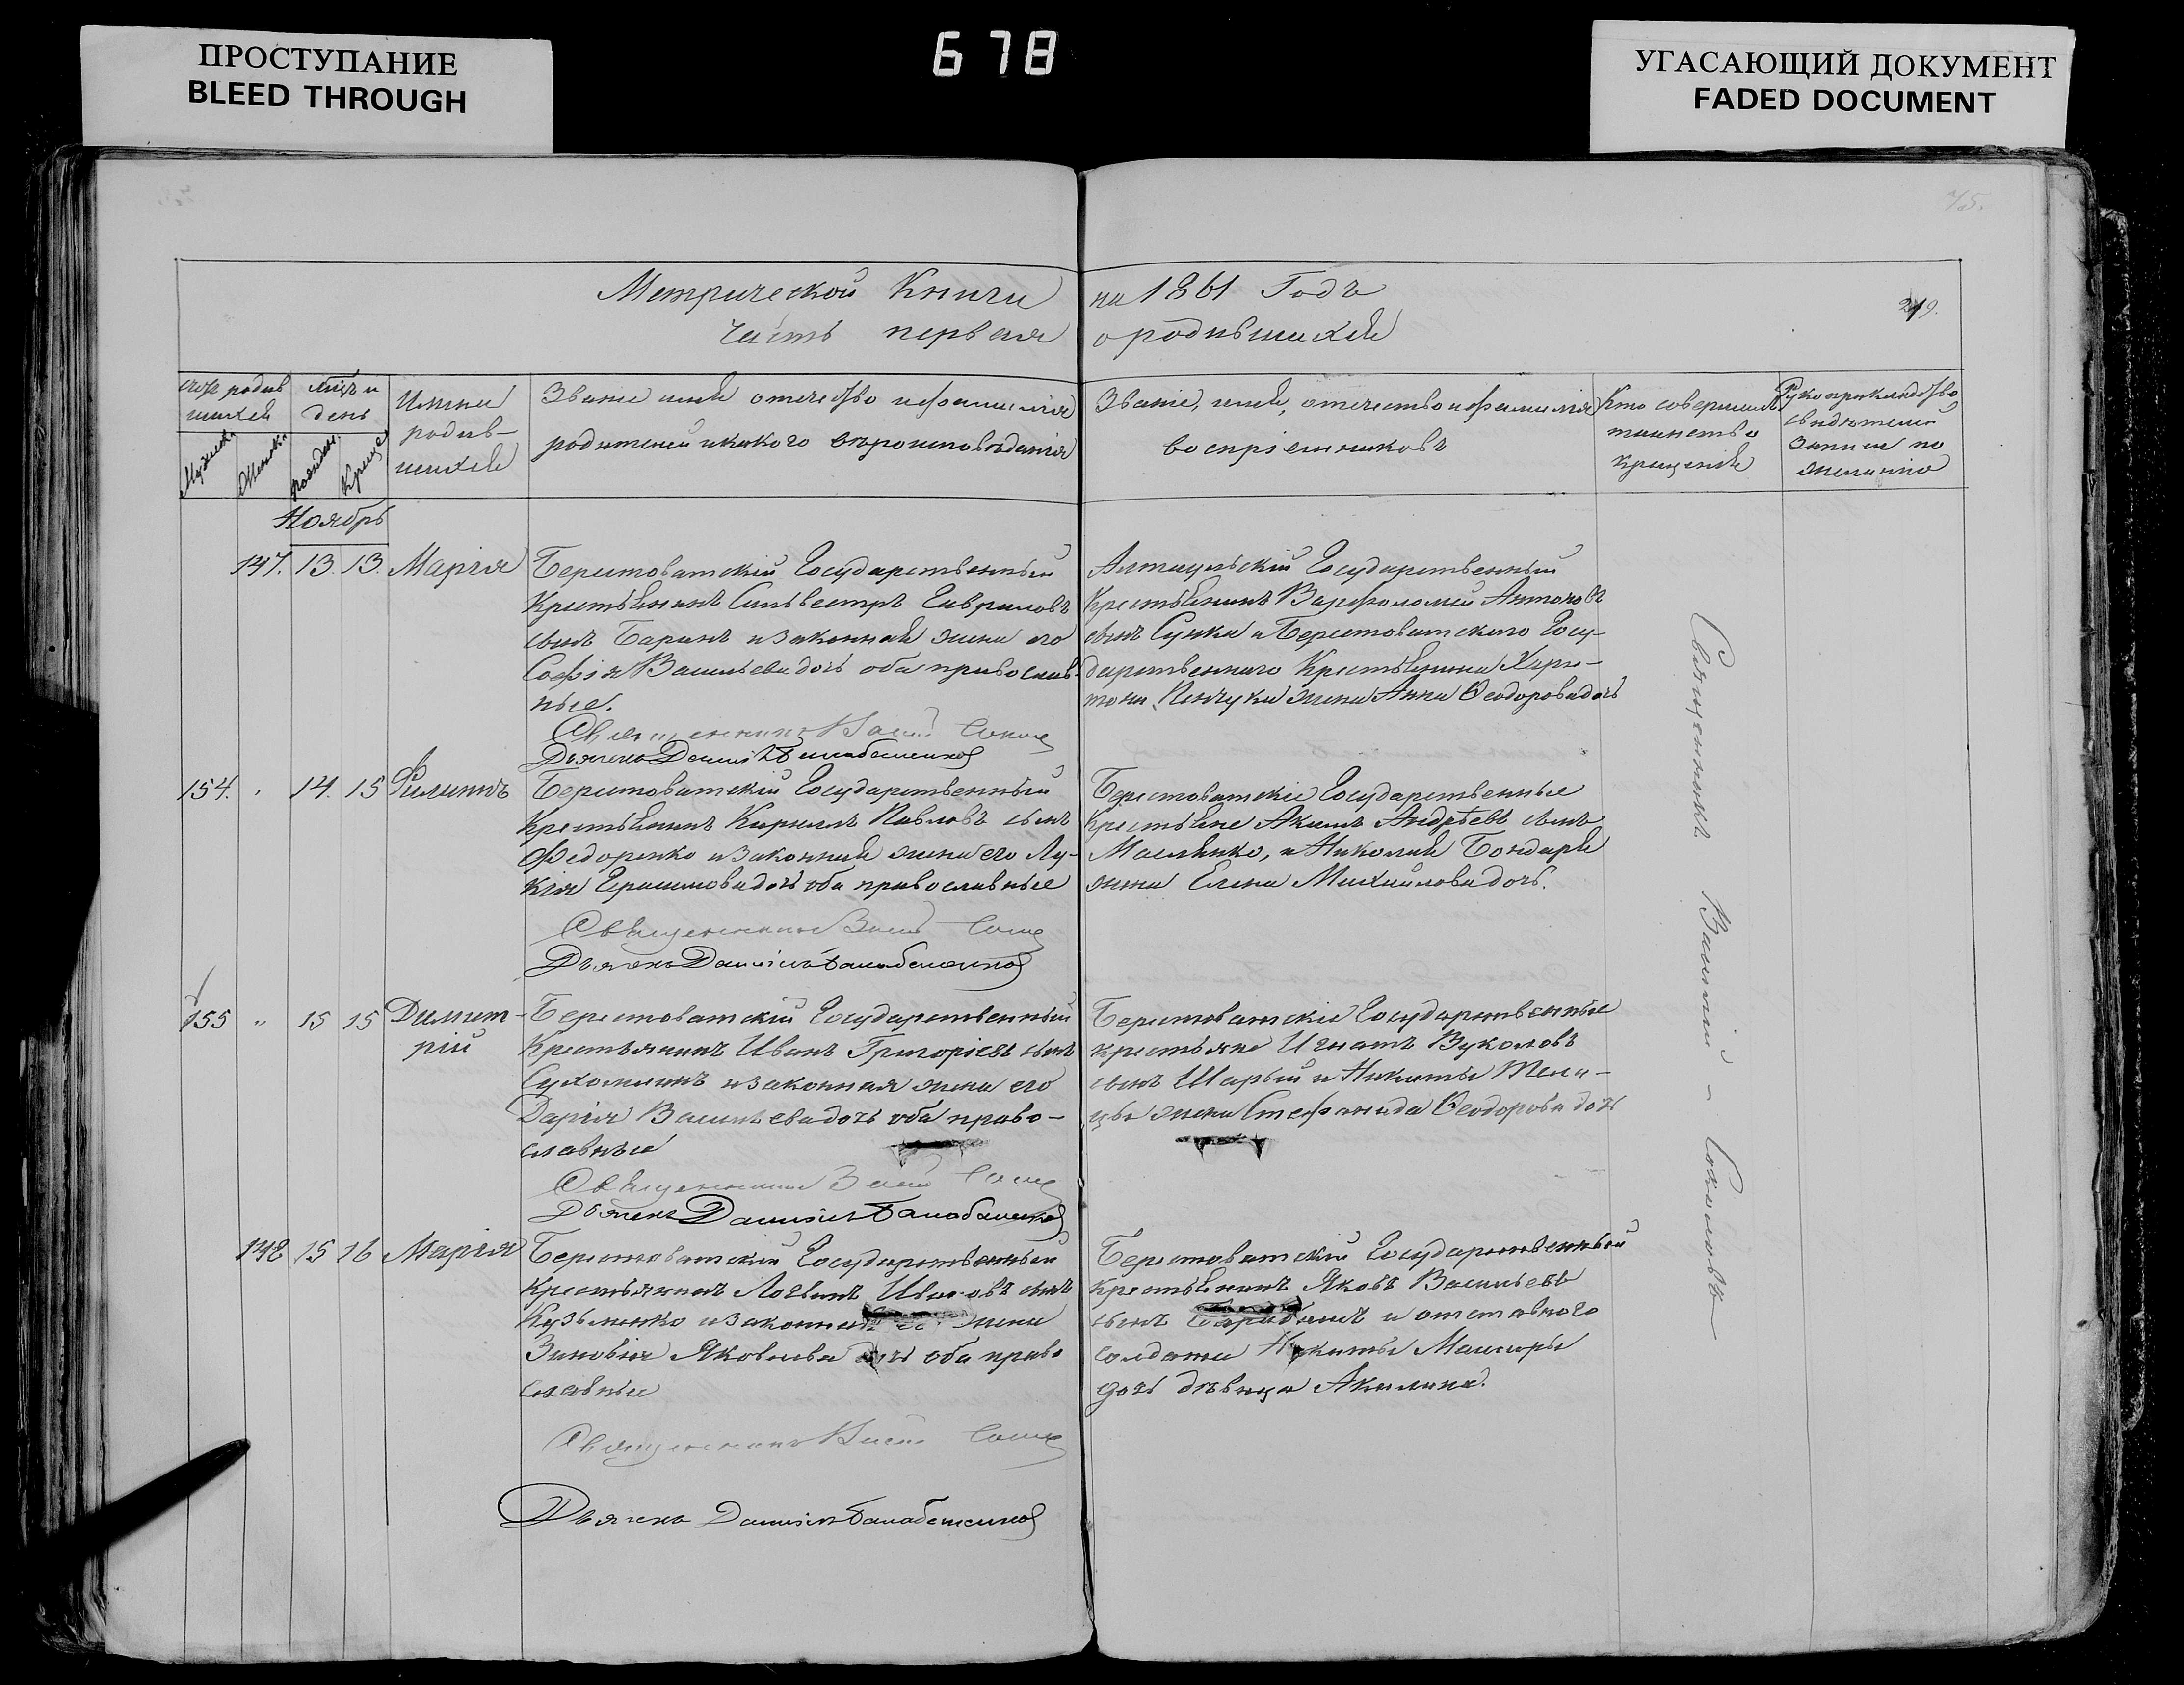 ПРОСТУПАНИЕ
BLEED THROUGH
678
УГАСАЮЩИЙ ДОКУМЕНТ
FADED DOCUMENT
75.
Метрической Книги на 1861 Годъ
219.
часть первая о родившихся
родив
шихся
день
Имена
родив-
шихся
Званіе имя отечество и фамилія
родителей и какого вѣроисповѣданія
Званіе, имя, отечество и фамилія
воспріемниковъ
Кто совершалъ
таинство
крещенія
Рукоприкладство
свидѣтелей
записи по
желанію
Ноябрь
147. 13. 13. Марія
Берестоватскій Государственный
Крестьянинъ Сильвестръ Гавриловъ
сынъ Баранъ и законная жена его
Софія Васильева дочь оба православ-
ные.
Священникъ Вас
Дьячекъ Даніилъ
Государственный
Крестьянинъ Варфоломей Антоновъ
сынъ и Берестоватскаго Госу-
дарственнаго Крестьянина Хари-
тона жена Анна Ѳеодорова дочь
154. 14. 15 Филиппъ
Берестоватскій Государственный
Крестьянинъ Кириллъ Павловъ сынъ
Федоренко и законная жена его Лу-
кія Герасимова дочь оба православные
Священникъ Вас
Дьячекъ Даніилъ
Берестоватскіе Государственные
Крестьяне Акимъ Андрѣевъ сынъ
Маслянко, и Николая Бондаря
жена Елена Михайлова дочь.
155 " 15 15 Димит-
рій
Берестоватскій Государственный
Крестьянинъ Иванъ Григоріевъ сынъ
Сухомлинъ и законная жена его
Дарія Васильева дочь оба право-
славные
Священникъ Вас
Дьячекъ Даніилъ
Берестоватскіе Государственные
крестьяне Игнатъ Вуколовъ
сынъ Шарый и Никиты Тели-
цы жена Стефанида Ѳеодорова дочь
148 15 16 Марія
Берестоватскій Государственный
Крестьянинъ Логвинъ Ивановъ сынъ
Кузьменко и законная его жена
Зиновія Яковлева дочь оба право
славные
Священникъ Вас
Дьячекъ Даніилъ
Берестоватскій Государственный
Крестьянинъ Яковъ Васильевъ
сынъ и отставного
солдата Никиты
дочь дѣвица Акилина.
Священникъ Василій Соколовъ